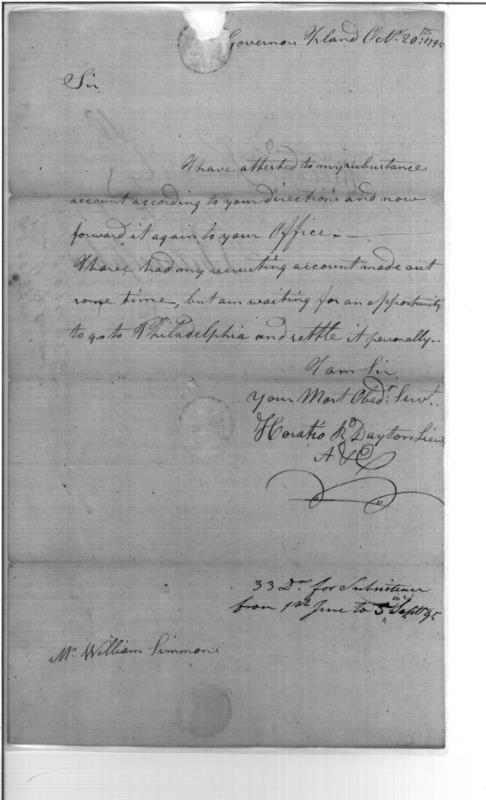 Governors Island Octr. 20th. 1795
Sir,
I have attested to my subsistance
account according to your directions and now
forward it again to your Office.
I have had my recruiting account made out
some time, but am waiting for an opportunity
to go to Philadelphia and settle it personally.
I am Sir
Your Most Obedt. Servt.
Horatio Ro Dayton Lieut
A &
33 Drs. for Subsistence
from 1st June to 5 Septr 95
Mr. William Simmons